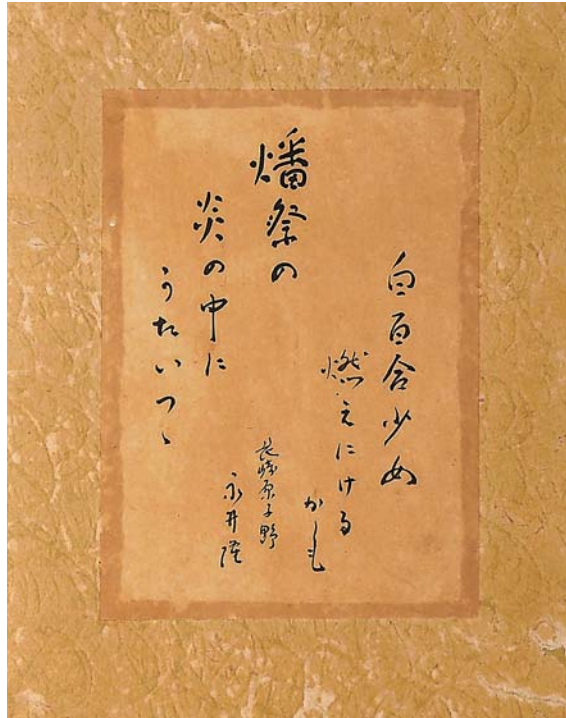 燔祭の
炎の中に
うたいつゝ
白百合少女
燃えにける
かも
長崎原子野
永井隆